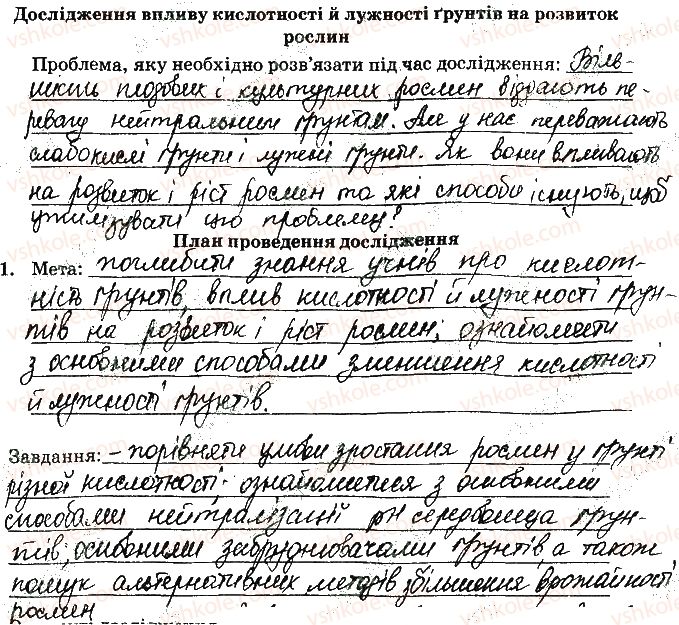 Дослідження впливу кислотності й лужності ґрунтів на розвиток
рослин
Проблема, яку необхідно розв'язати під час дослідження: Біль-
шість плодових і культурних рослин віддають пе-
ревагу нейтральним ґрунтам. Але у нас переважають
слабокислі ґрунти і лужні ґрунти. Як вони впливають
на розвиток і ріст рослин та які способи існують, щоб
утилізувати цю проблему?
План проведення дослідження
1. Мета: поглибити знання учнів про кислот-
ність ґрунтів, вплив кислотності й лужності ґрун-
тів на розвиток і ріст рослин; ознайомити
з основними способами зменшення кислотності
й лужності ґрунтів.
Завдання: - порівняти умови зростання рослин у ґрунті
різної кислотності. ознайомитися з основними
способами нейтралізації рН середовища ґрун-
тів, основними забруднювачами ґрунтів, а також
пошук альтернативних методів збільшення врожайності
рослин